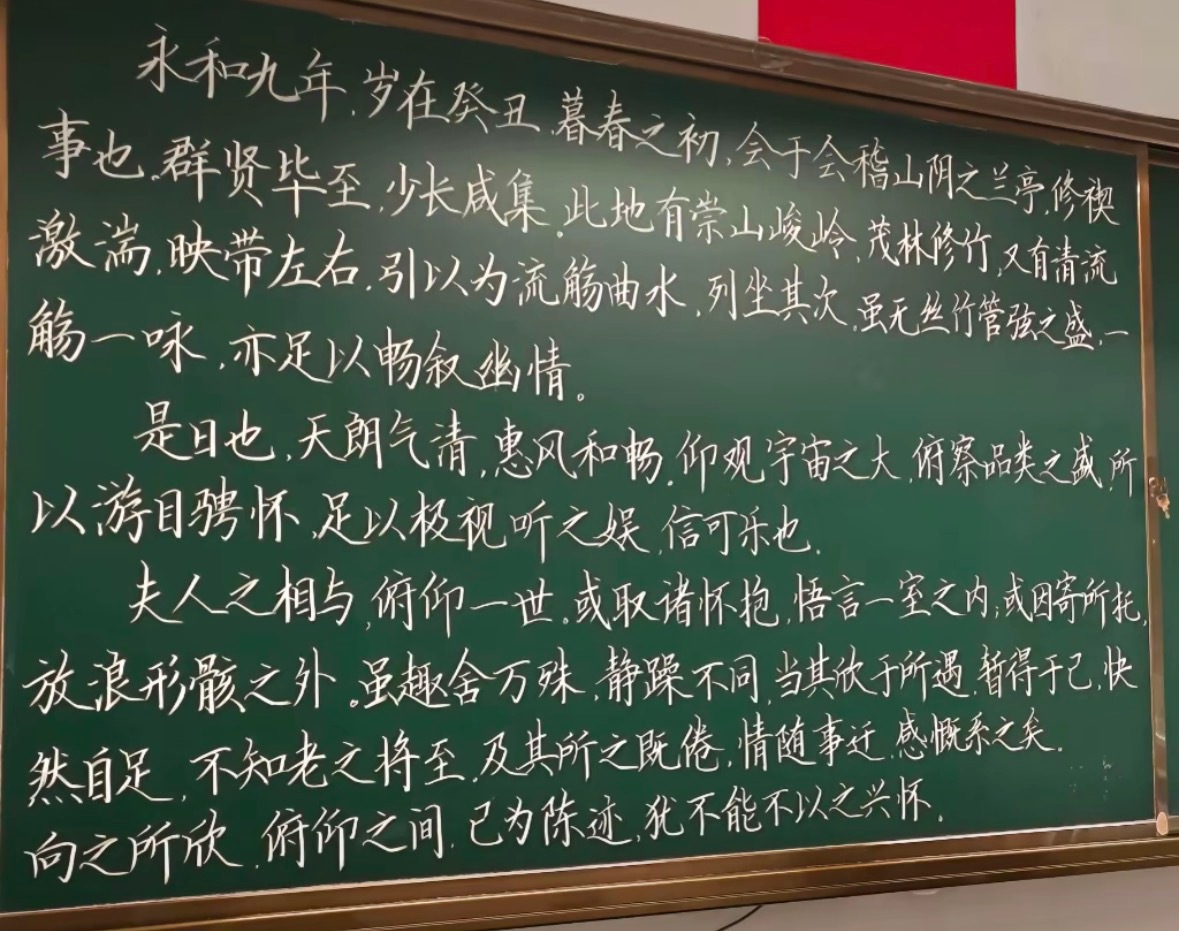 永和九年,岁在癸丑,暮春之初,会于会稽山阴之兰亭,修禊
事也。群贤毕至,少长咸集。此地有崇山峻岭,茂林修竹,又有清流
激湍,映带左右,引以为流觞曲水,列坐其次,虽无丝竹管弦之盛,一
觞一咏,亦足以畅叙幽情。
是日也,天朗气清,惠风和畅,仰观宇宙之大,俯察品类之盛,所
以游目骋怀,足以极视听之娱,信可乐也.
夫人之相与,俯仰一世。或取诸怀抱,悟言一室之内;或因寄所托,
放浪形骸之外。虽趣舍万殊,静躁不同,当其欣于所遇,暂得于己,快
然自足,不知老之将至,及其所之既倦,情随事迁,感慨系之矣.
向之所欣,俯仰之间,已为陈迹,犹不能不以之兴怀.